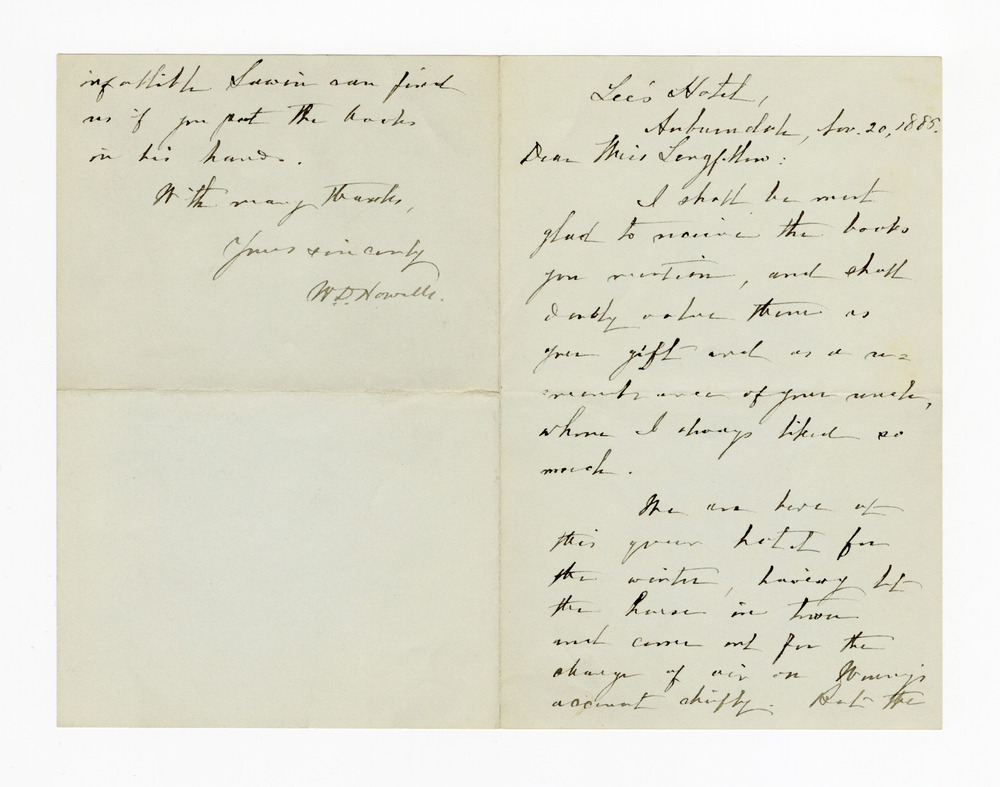 Lee's Hotel,
Auburndale, Nov. 20, 1885.
Dear Miss Longfellow:
I shall be most
glad to receive the books
you mention, and shall
doubly value them as
your gift and as a re=
membrance of your uncle,
whom I always liked so
much.
We are here at
this queer hotel for
the winter, having let
the house in town
and come out for the
change of air on Winny's
account chiefly. But the
infallible Sawin can find
us if you put the books
in his hands.
With many thanks,
Yours sincerely
W. D. Howells.